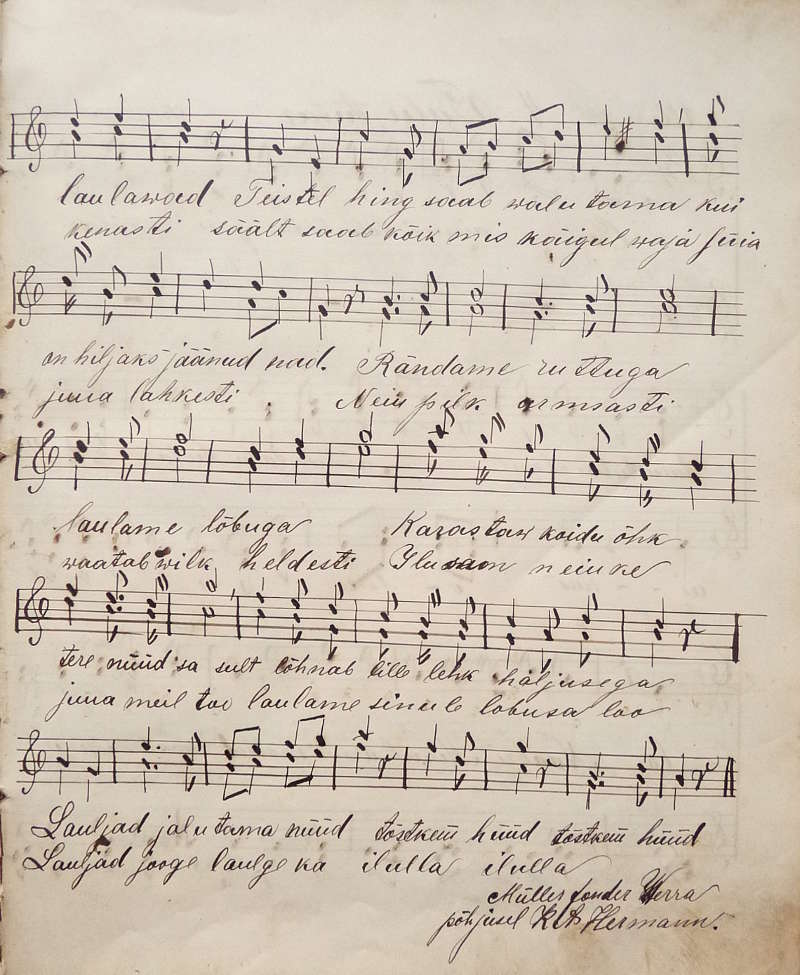 laulawad Teistel hing saab walutama kui
kenasti säält saab kõik mis kõigul waja süia
on hiljaks jäänud nad. Rändame ruttuga
juua lahkesti. Neiu pilk armsasti
laulame lõbuga Karastaw koidu õhk
waatab wilk heldesti Ilus on neiuke
tere nüüd sa sult lõhnab lille lehk haljusega
juua meil too laulame sinule lobusa loo
Lauljad jalutama nüüd tõstkem hüüd tõstkem hüüd
Lauljad jooge laulge ka ilulla ilulla
Müller fonder Werra
põhjusel K A Hermann.